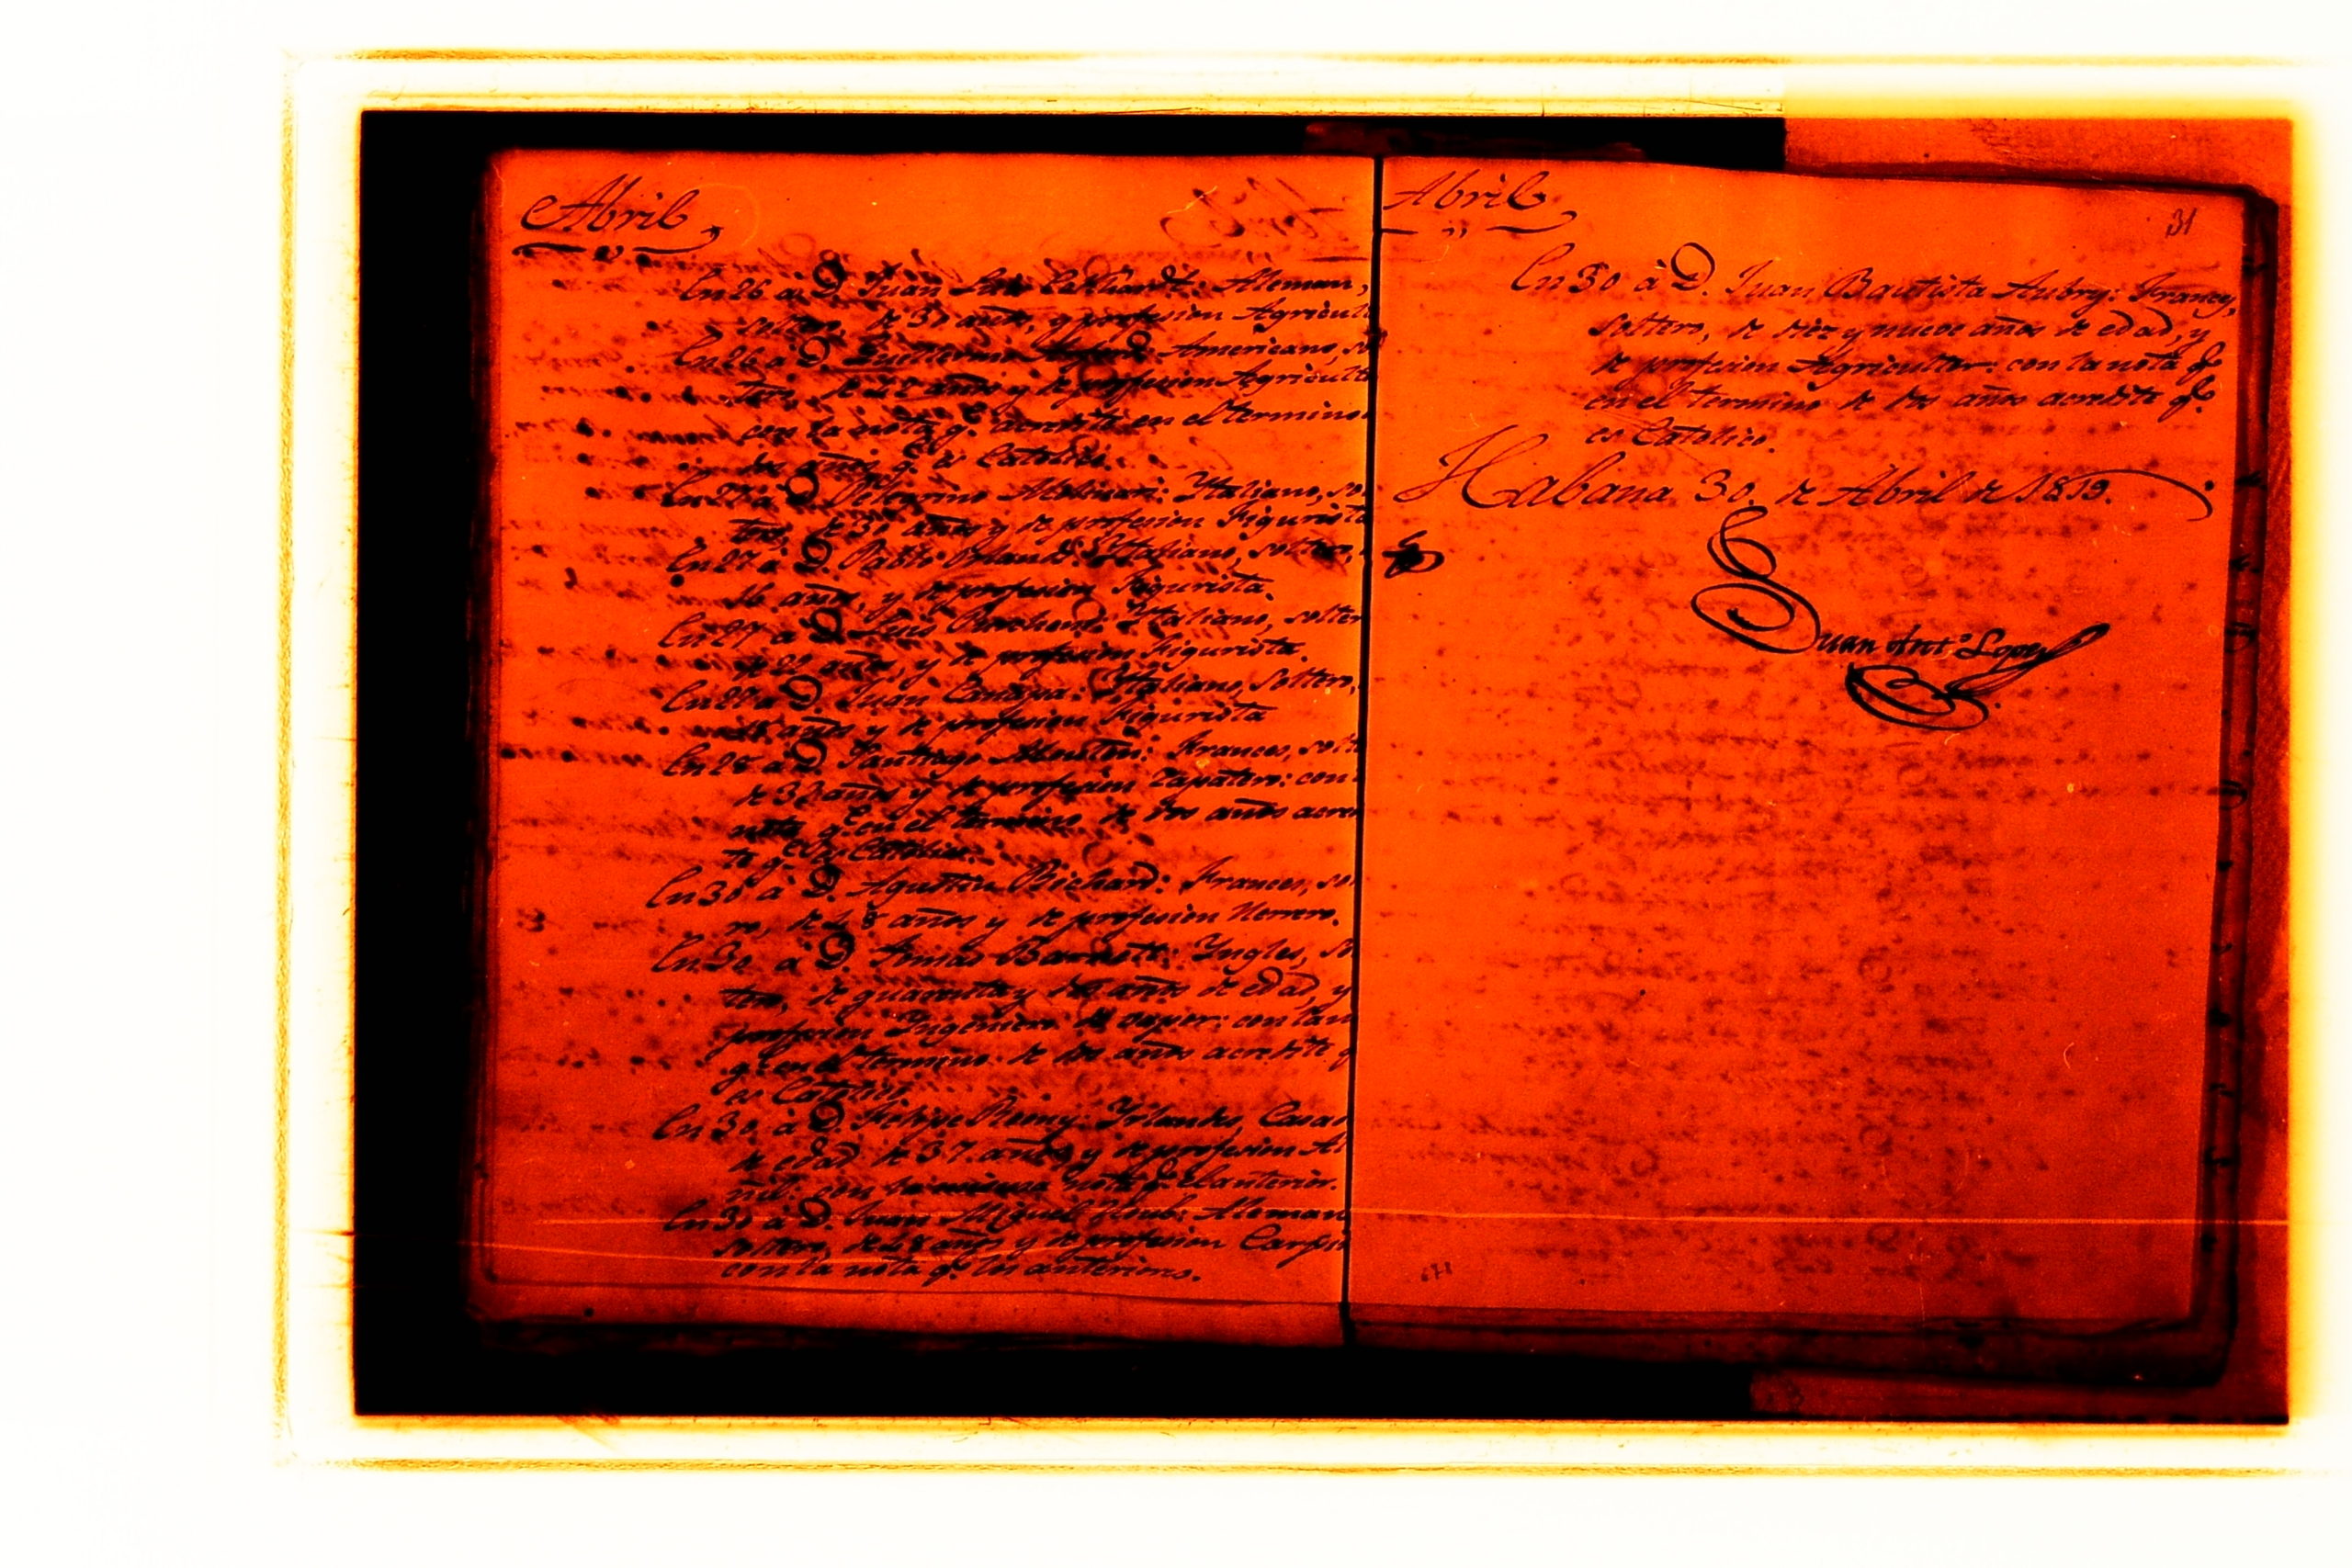 Abril
En 26 à D. Juan Aleman,
soltero, de 30 años, y profesion Agricult
En 26 à D. Guillermo Americano, sol
tero, de 22 años y de profesion Agriculto
con la nota q.e acredite en el termino
dos años q.e es Catolico.
En 27 à D. Pelegrino Molinari: Ytaliano, sol
tero, de 30 años y de profesion Figurista
En 27 à D. Pablo Ytaliano, soltero,
16 años, y de profesion Figurista.
En 27 à D. Luis Ytaliano, solter
años, y de profesion Figurista.
En à D. Juan Ytaliano, soltero,
18 años y de profesion Figurista
En 28 à D. Santiago Frances, solte
de años y de profesion Zapatero: con l
nota q.e en el termino de dos años acredi
te q.e es Catolico.
En 30 à D. Agustin Richard: Frances, sol
ro, de años y de profesion Herrero.
En 30 à D. Tomas Barnett: Yngles, so
tero, de quarenta y años de edad, y
profesion Yngeniero de vapor: con la n
q.e en el termino de dos años acredite q
es Catolico.
En 30 à D. Felipe Remy: Yrlandes, Casad
de edad de 37 años y de profesion Al
ñil: con la misma nota q.e el anterior.
En 30 à D. Juan Miguel Aleman
soltero, de 28 años y de profesion Carpin
con la nota q.e los anteriores.
Abril
31
En 30 à D. Juan Bautista Aubry: Frances,
soltero, de diez y nueve años de edad, y
de profesion Agricultor: con la nota q.e
en el termino de dos años acredite q.e
es Catolico.
Habana 30 de Abril de 1819.
Juan Ant.o Lopez